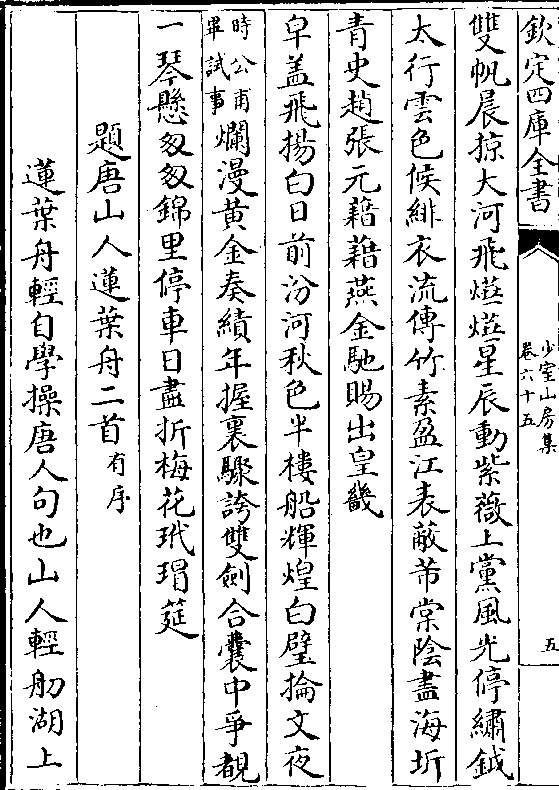 欽定四庫全書
少室山房集
卷六十五
五
雙帆晨掠大河飛熒熒星辰動紫薇上黨風光停繡鉞
太行雲色候緋衣流傳竹素盈江表蔽芾棠陰盡海圻
青史趙張元藉藉燕金馳賜出皇畿
皁盖飛揚白日前汾河秋色半樓船輝煌白璧掄文夜
時公甫
畢試事
爛漫黄金奏績年握裏驟誇雙劍合囊中爭覩
一琴懸匆匆錦里停車日盡折梅花玳瑁筵
題唐山人蓮葉舟二首有序
蓮葉舟輕自學操唐人句也山人輕舠湖上